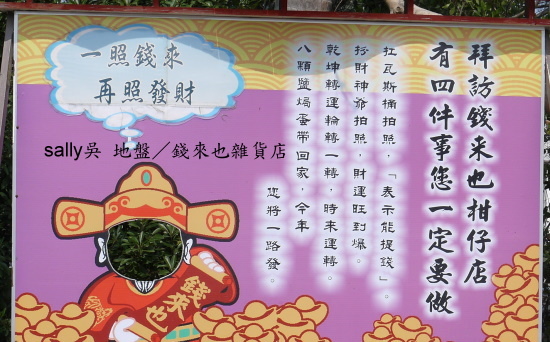 一照錢來
再照發財
sally吳 地盤／錢來也雜貨店
拜訪錢來也柑仔店
有四件事您一定要做
拉瓦斯桶拍照，「表示能提錢」。
扮財神爺拍照，財運旺到爆。
乾坤轉運輪轉一轉，時來運轉。
八顆鹽焗蛋帶回家，今年
您將一路發。
錢來也